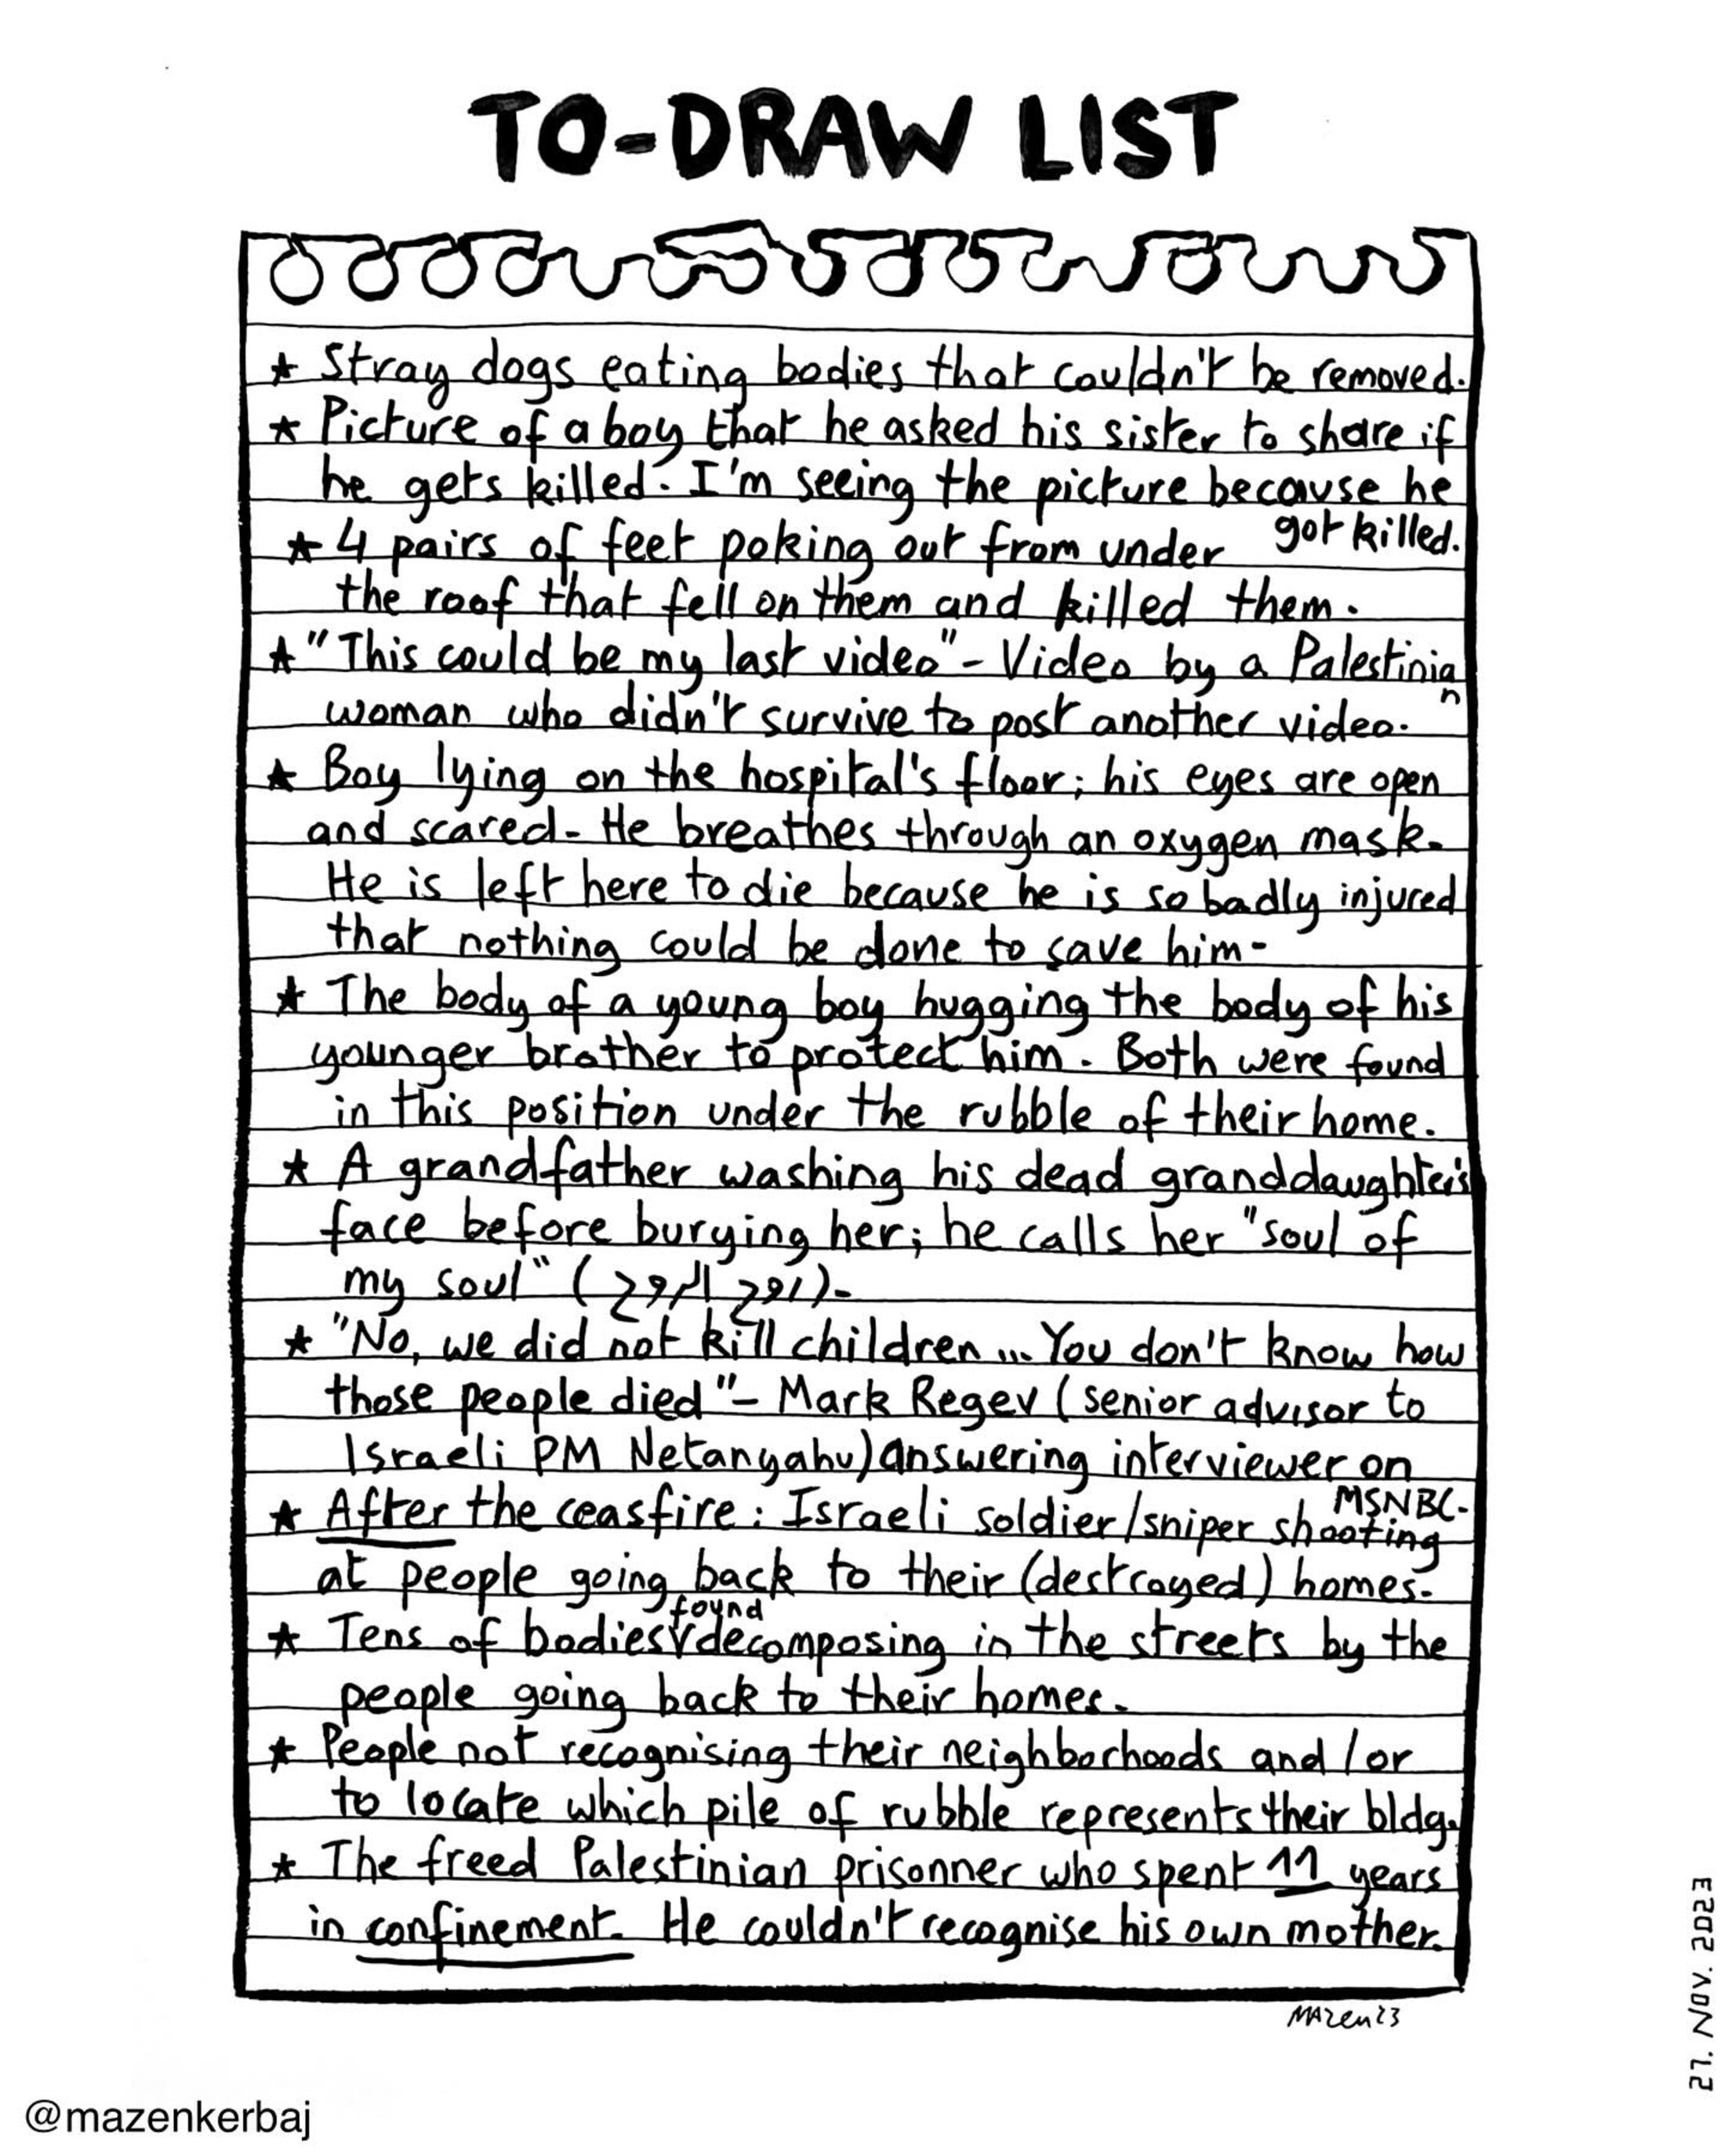 TO-DRAW LIST
★ Stray dogs eating bodies that couldn't be removed.
★ Picture of a boy that he asked his sister to share if
he gets killed. I'm seeing the picture because he
got killed.
★ 4 pairs of feet poking out from under
the roof that fell on them and killed them.
★ "This could be my last video" - Video by a Palestinian
woman who didn't survive to post another video.
★ Boy lying on the hospital's floor; his eyes are open
and scared. He breathes through an oxygen mask.
He is left here to die because he is so badly injured
that nothing could be done to save him.
★ The body of a young boy hugging the body of his
younger brother to protect him. Both were found
in this position under the rubble of their home.
★ A grandfather washing his dead granddaughter's
face before burying her; he calls her "soul of
my soul" (روح الروح).
★ "No, we did not kill children... You don't know how
those people died" - Mark Regev (senior advisor to
Israeli PM Netanyahu) answering interviewer on
MSNBC.
★ After the ceasfire: Israeli soldier/sniper shooting
at people going back to their (destroyed) homes.
★ Tens of bodies found decomposing in the streets by the
people going back to their homes.
★ People not recognising their neighborhoods and/or
to locate which pile of rubble represents their bldg.
★ The freed Palestinian prisonner who spent 11 years
in confinement. He couldn't recognise his own mother.
MAZEN 23
27. NOV. 2023
@mazenkerbaj